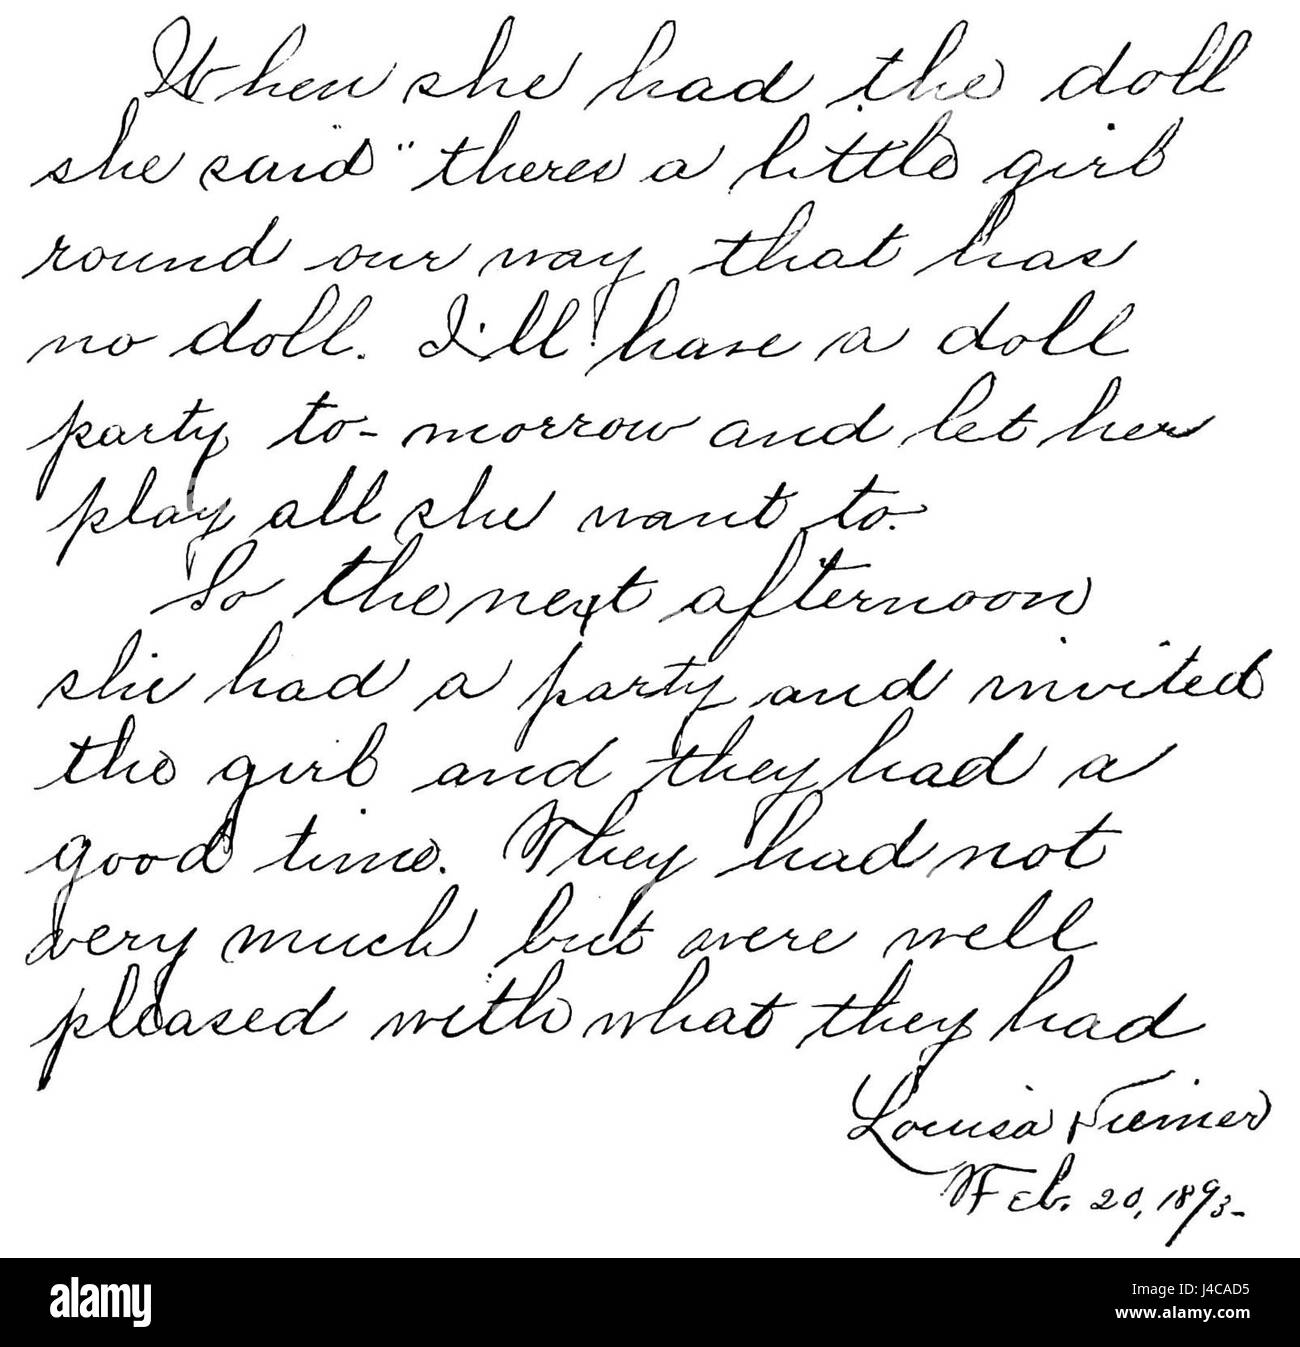 When she had the doll
she said "theres a little girl
round our way that has
no doll. I'll have a doll
party to-morrow and let her
play all she want to.
So the next afternoon
she had a party and invited
the girl and they had a
good time. They had not
very much but were well
pleased with what they had
Louisa
Feb. 20, 1893-
alamy
Image ID: J4CAD5
www.alamy.com